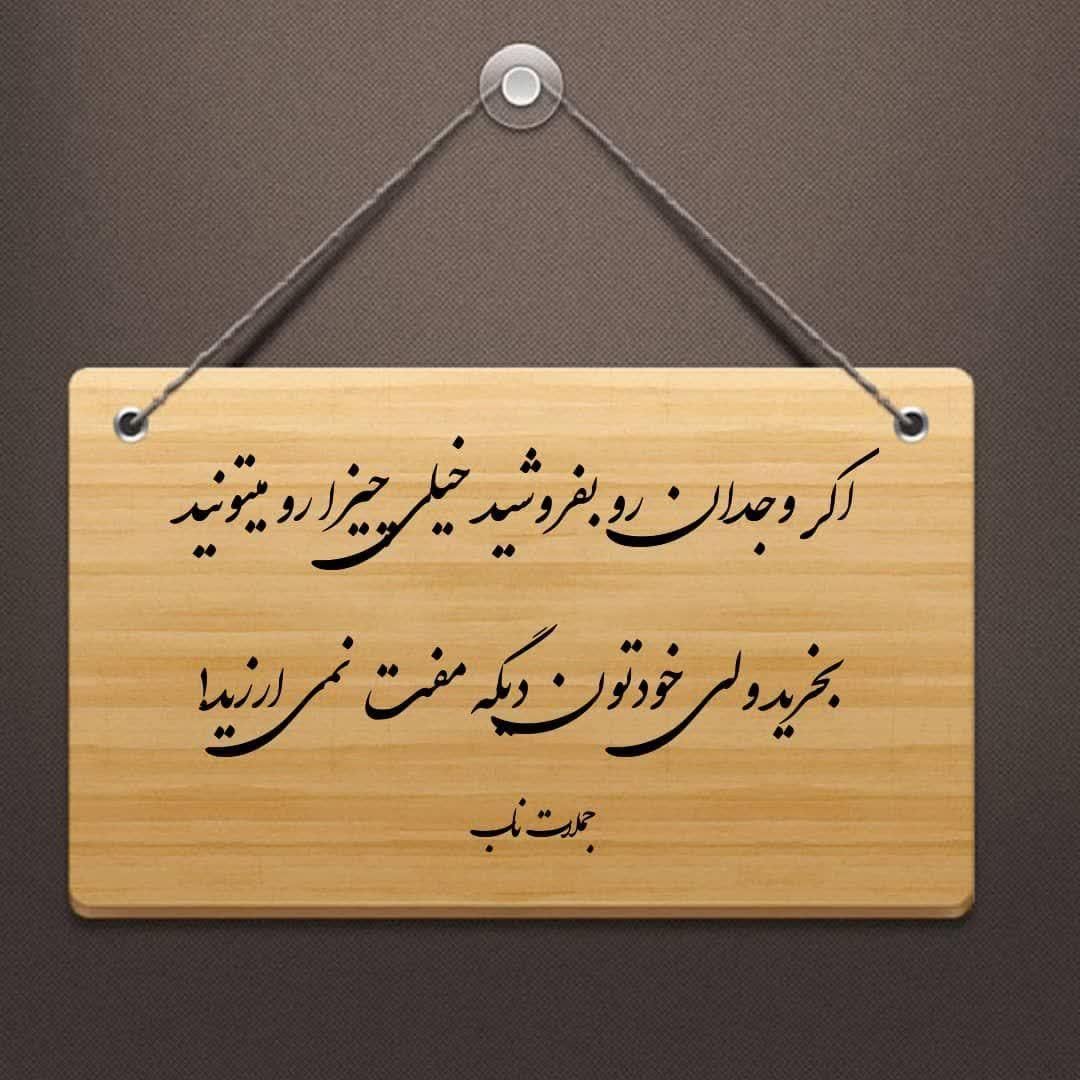 اگر وجدان رو بفروشید خیلی چیزا رو میتونید
بخرید ولی خودتون دیگه مفت نمی ارزید!
جملات ناب